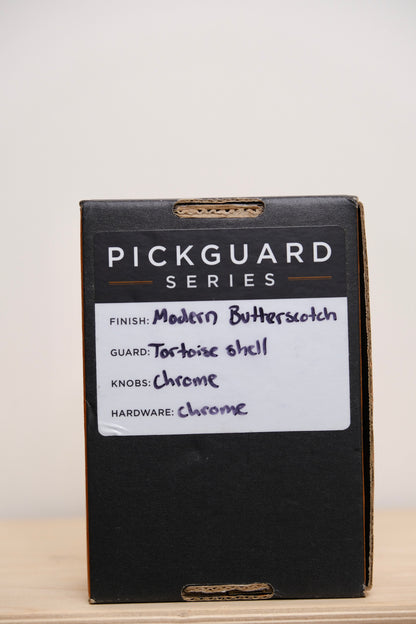 PICKGUARD
SERIES
FINISH: Modern Butterscotch
GUARD: Tortoise shell
KNOBS: Chrome
HARDWARE: chrome